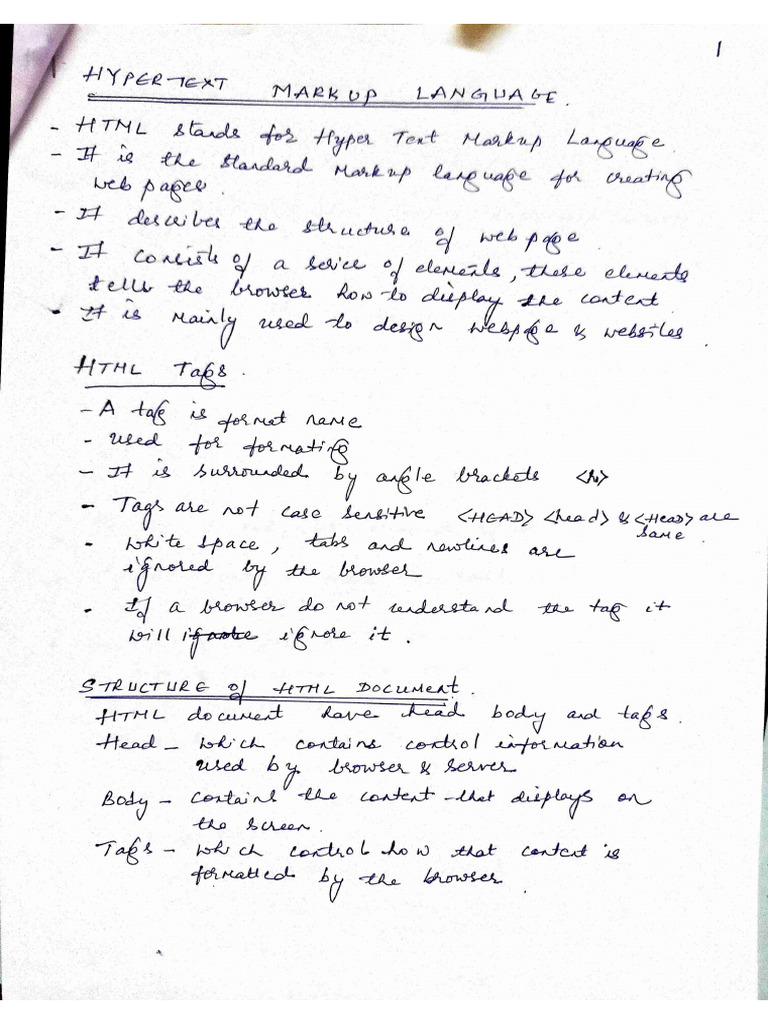 1
HYPERTEXT MARKUP LANGUAGE.
- HTML stands for Hyper Text Markup Language.
- It is the standard Markup language for creating
web pages.
- It describes the structure of web page.
- It consists of a serice of elements, these elements
tells the browser how to display the content.
- It is Mainly used to design webpage & websites.
HTML Tags.
- A tag is format name
- used for formating
- It is surrounded by angle brackets <h>
- Tags are not case sensitive <HEAD> <head> & <Head> are
same.
- White space, tabs and newlines are
ignored by the browser
- If a browser do not understand the tag it
will ignore it.
STRUCTURE of HTML DOCUMENT.
HTML document have head body and tags.
Head - which contains control information
used by browser & server
Body - contains the content that displays on
the screen.
Tags - which control how that content is
formatted by the browser.